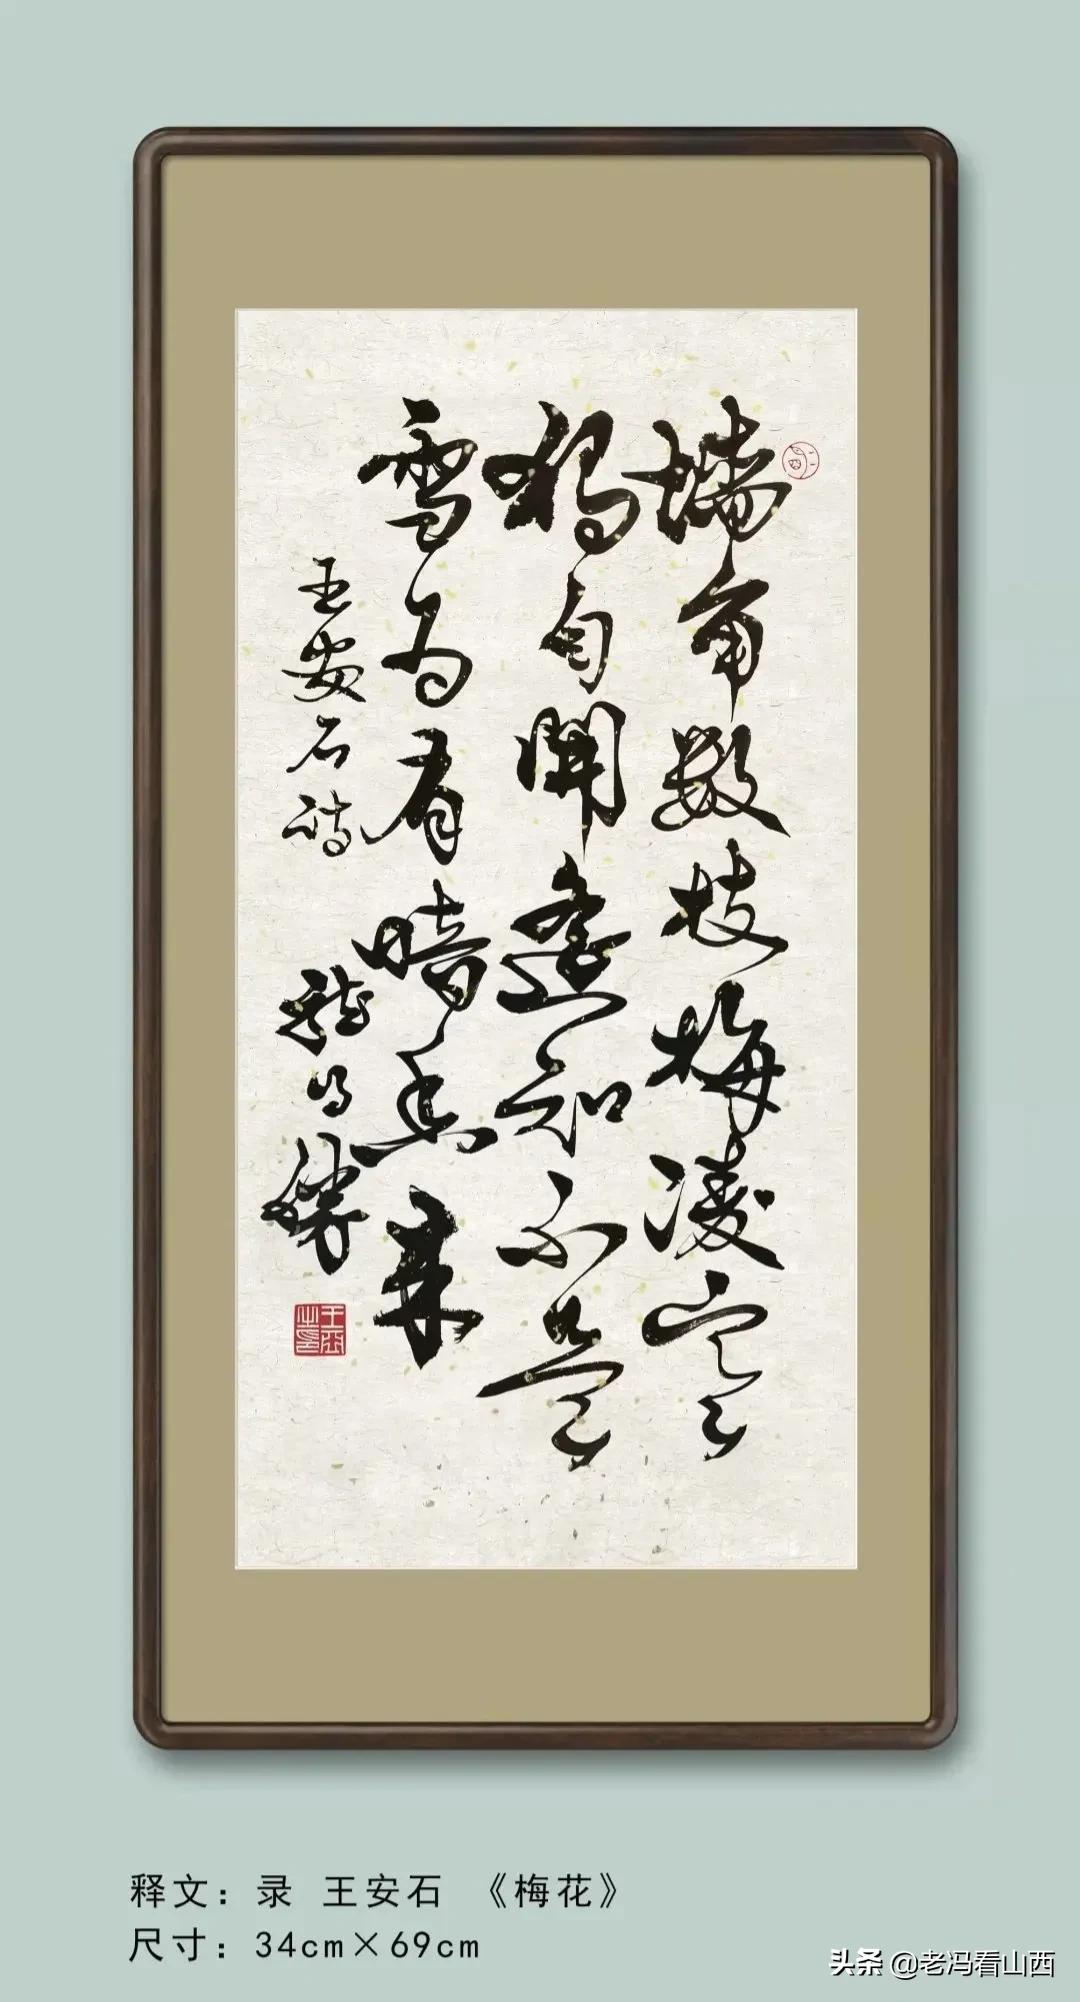 墙角数枝梅凌寒
独自開遥知不是
雪为有暗香来
王安石诗
释文：录 王安石 《梅花》
尺寸：34cm×69cm
头条 @老冯看山西